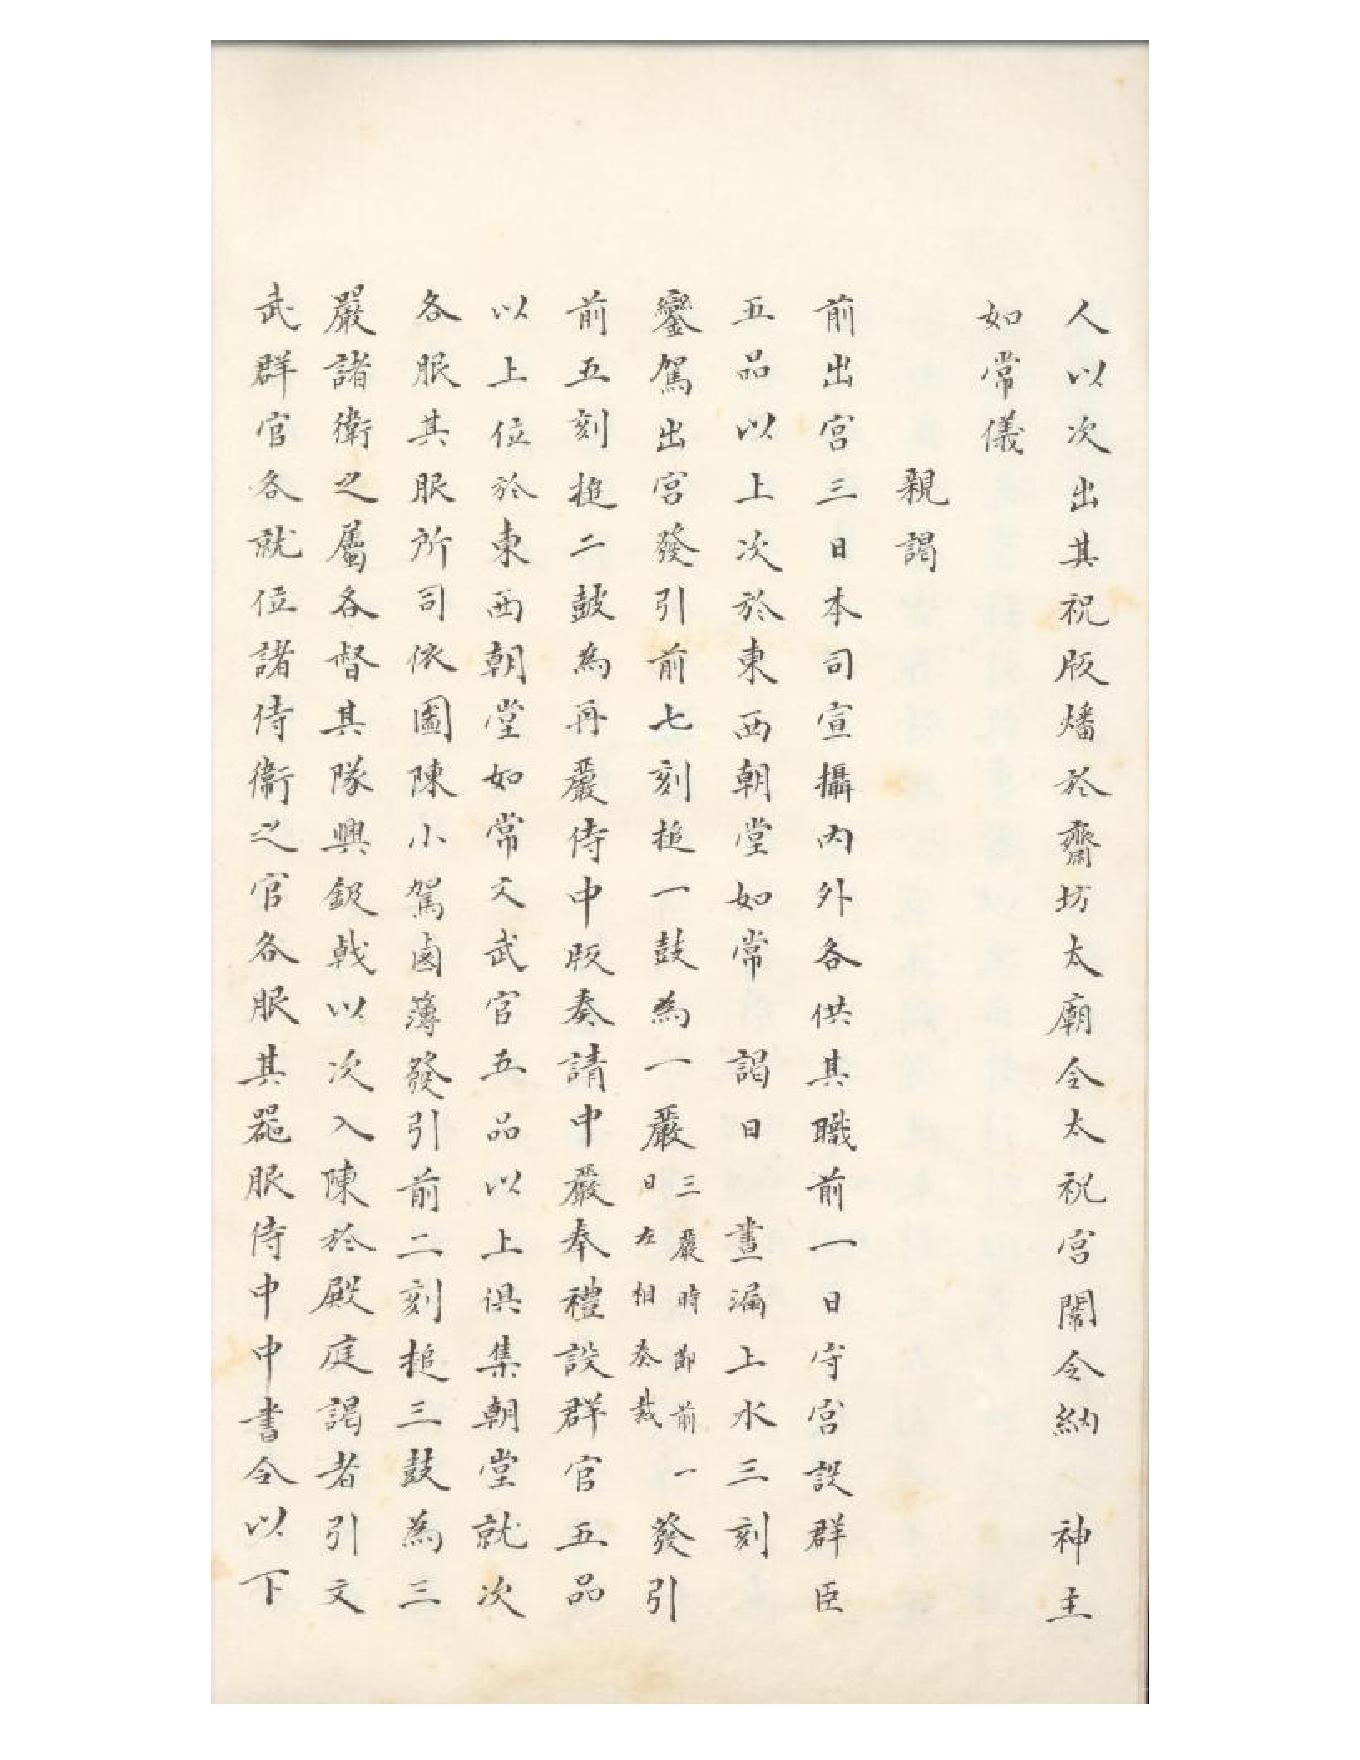 人以次出其祝版燔於齋坊太廟令太祝宮闈令納　神主
如常儀
親謁
前出宮三日本司宣攝內外各供其職前一日守宮設群臣
五品以上次於東西朝堂如常　謁日　晝漏上水三刻
鑾駕出宮發引前七刻搥一鼓為一嚴三嚴時節前一日左相奏裁發引
前五刻搥二鼓為再嚴侍中版奏請中嚴奉禮設群官五品
以上位於東西朝堂如常文武官五品以上俱集朝堂就次
各服其服所司依圖陳小駕鹵簿發引前二刻搥三鼓為三
嚴諸衛之屬各督其隊與鈒戟以次入陳於殿庭謁者引文
武群官各就位諸侍衛之官各服其器服侍中中書令以下